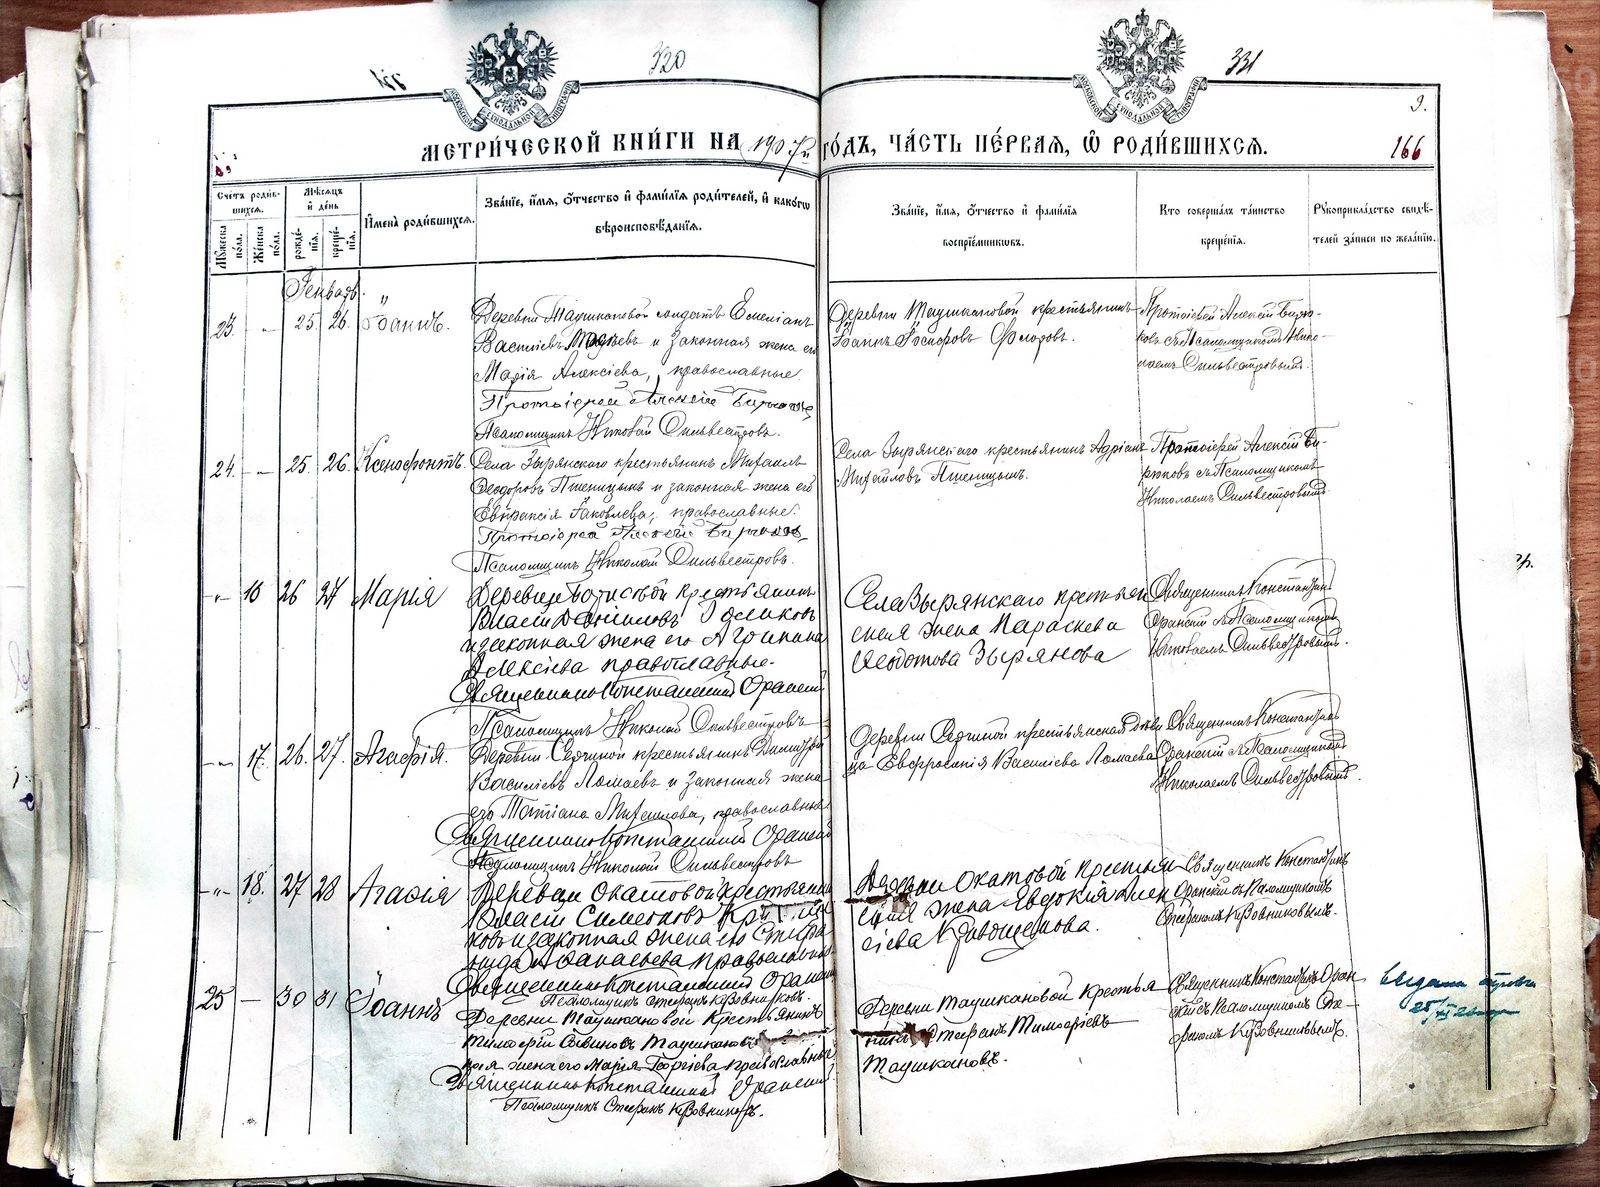 320
331
МОСКОВСКОЙ СѴНОДАЛЬНОЙ ТИПОГРАФІИ
МОСКОВСКОЙ СѴНОДАЛЬНОЙ ТИПОГРАФІИ
9.
МЕТРИ́ЧЕСКОЙ КНИ́ГИ НА 1907й ГО́ДЪ, ЧА́СТЬ ПЕ́РВАЯ, Ѡ РОДИ́ВШИХСЯ.
166
Сче́тъ роди́в-
шихся.
Мѣсяцъ
и день
Имена̀ роди́вшихся.
Зва́нїе, и́мя, о́тчество и фами́лїя роди́телей, и како́гѡ
вѣроисповѣ́данїя.
Зва́нїе, и́мя, о́тчество и фами́лїя
воспрїе́мниковъ.
Кто соверша́лъ та́инство
креще́нїя.
Рукоприкла́дство свидѣ́-
телей за́писи по жела́нїю.
Му́жеска
по́ла.
Же́нска
по́ла.
рожде́-
нїя.
креще́-
нїя.
Генварь.
23. - 25. 26. Іоаннъ.
Деревни Таушкановой солдатъ Емеліанъ
Василіевъ и законная жена его
Марія Алексіева, православные.
Протоіерей Алексій Бирюковъ
Псаломщикъ Николай Сильвестровъ.
Деревни Таушкановой крестьянинъ
Іоаннъ Іосифовъ Флоровъ.
Протоіерей Алексій Бирю-
ковъ съ Псаломщикомъ Нико-
лаемъ Сильвестровымъ.
24. - 25. 26. Ксенофонтъ.
Села Зырянскаго крестьянинъ Михаилъ
Феодоровъ Пшеницынъ и законная жена его
Евпраксія Іаковлева, православные.
Протоіерей Алексій Бирюковъ
Псаломщикъ Николай Сильвестровъ.
Села Зырянскаго крестьянинъ Адріанъ
Михайловъ Пшеницынъ.
Протоіерей Алексій Би-
рюковъ съ Псаломщикомъ
Николаемъ Сильвестровымъ.
-"- 16 26 27 Марія
Деревни крестьянинъ
Власій Даніиловъ Голиковъ
и законная жена его Агрипина
Алексіева православные.
Священникъ Константинъ Оранскій
Псаломщикъ Николай Сильвестровъ
Села Зырянскаго крестьян
ская жена Параскева
Феодотова Зырянова
Священникъ Константинъ
Оранскій съ Псаломщикомъ
Николаемъ Сильвестровымъ.
-"- 17. 26. 27. Агафія.
Деревни крестьянинъ Димитрій
Василіевъ Ломаевъ и законная жена
его Татіана Михаилова, православные
Священникъ Константинъ Оранскій
Псаломщикъ Николай Сильвестровъ
Деревни крестьянская дѣви
ца Евфросинія Василіева Ломаева
Священникъ Константинъ
Оранскій съ Псаломщикомъ
Николаемъ Сильвестровымъ.
-"- 18. 27 28 Агафія
Деревни Окатовой крестьянинъ
Власій Симеоновъ
ковъ и законная жена его Стефа
нида Афанасьева православные
Священникъ Константинъ Оранскій
Псаломщикъ Стефанъ Кузовниковъ.
Деревни Окатовой крестьян
ская жена Евдокія Алек
сіева Кривощекова.
Священникъ Константинъ
Оранскій съ Псаломщикомъ
Стефаномъ Кузовниковымъ.
25 — 30 31 Іоаннъ
Деревни Таушкановой крестьянинъ
Тимофій Саввиновъ Таушкановъ
ная жена его Марія Георгіева православные
Священникъ Константинъ Оранскій
Псаломщикъ Стефанъ Кузовниковъ.
Деревни Таушкановой крестья
нинъ Стефанъ Тимофіевъ
Таушкановъ.
Священникъ Константинъ Оран
скій съ Псаломщикомъ Сте-
фаномъ Кузовниковымъ.
выдана